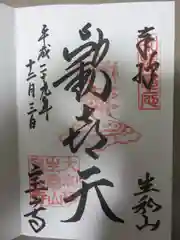 奉拝
生駒山
歡喜天
平成二十九年
十二月三日
宝山寺